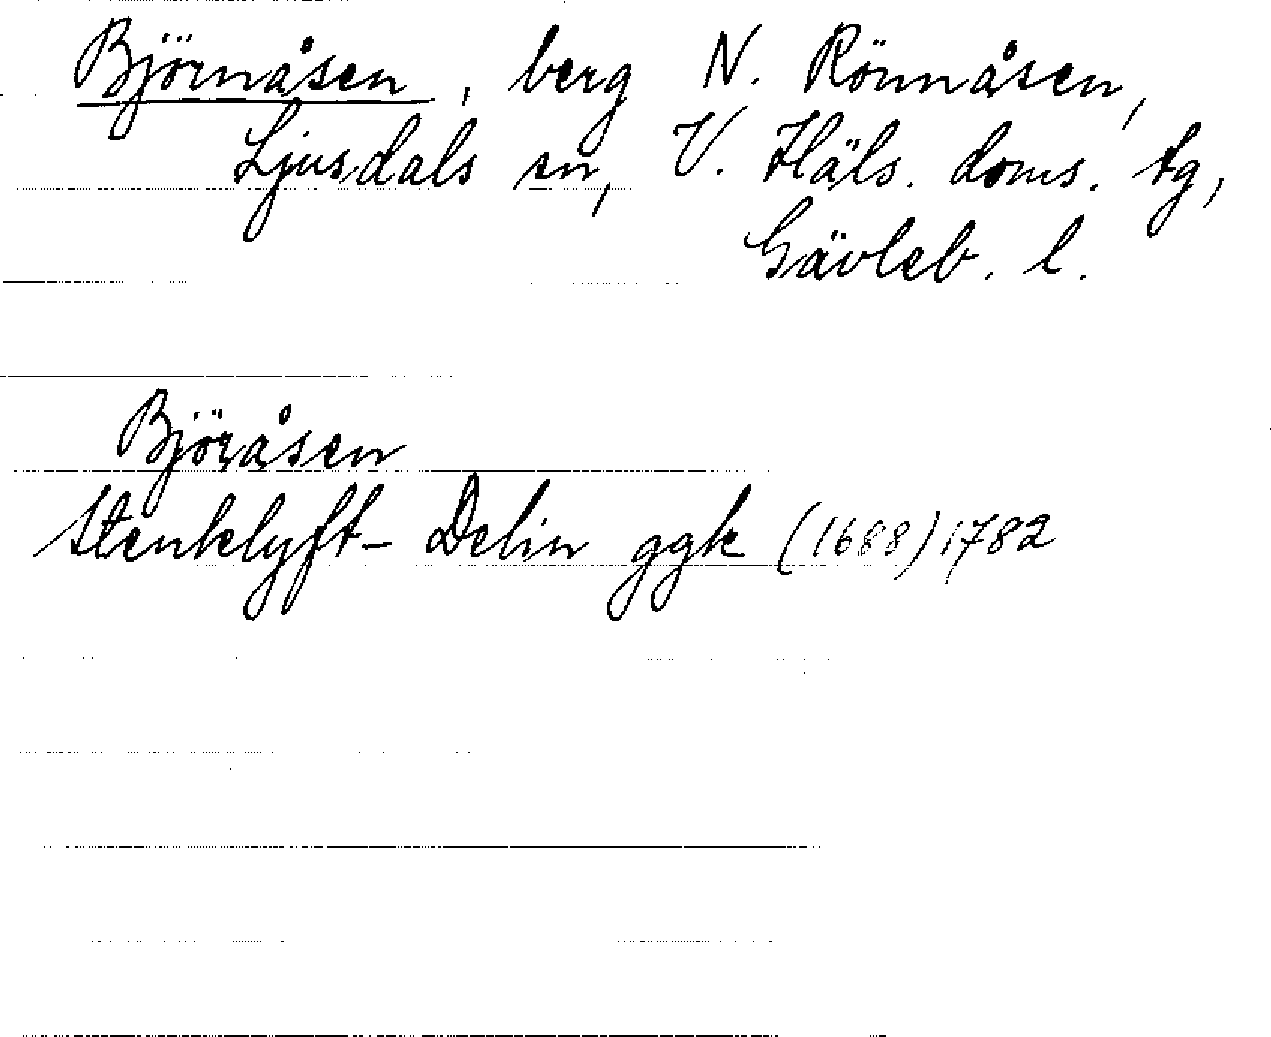 Björnåsen, berg N. Rönnåsen,
Ljusdals sn, V. Häls. doms. tg,
Gävleb. l.
Björåsen
Stenklyft- Delin ggk (1688) 1782